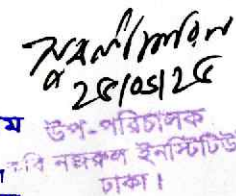 ২৫/০৫/২৫
ম উপ-পরিচালক
কবি নজরুল ইনস্টিটিউ
ঢাকা।